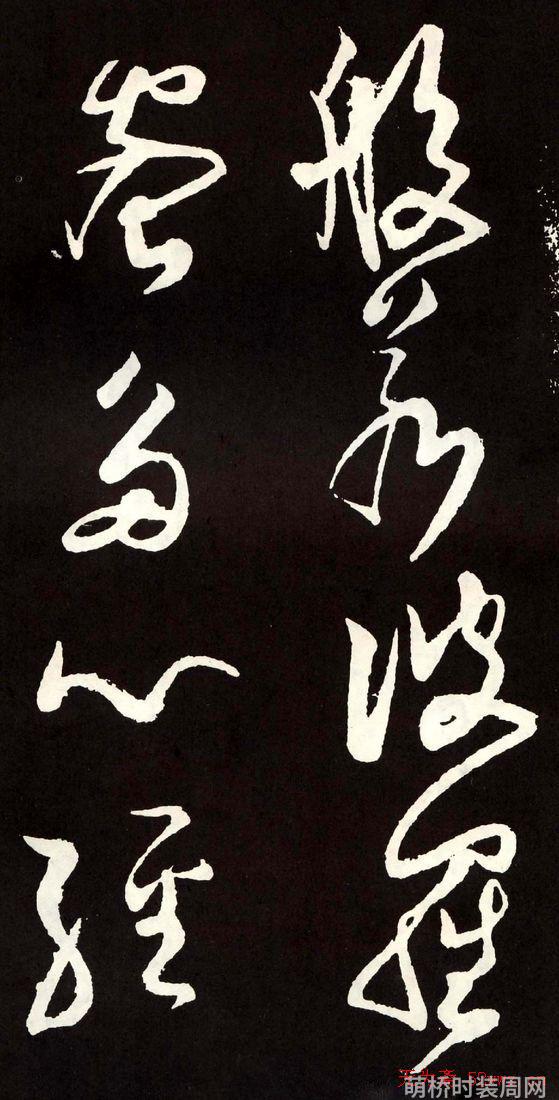 般若波羅
蜜多心經
萌桥时装周网